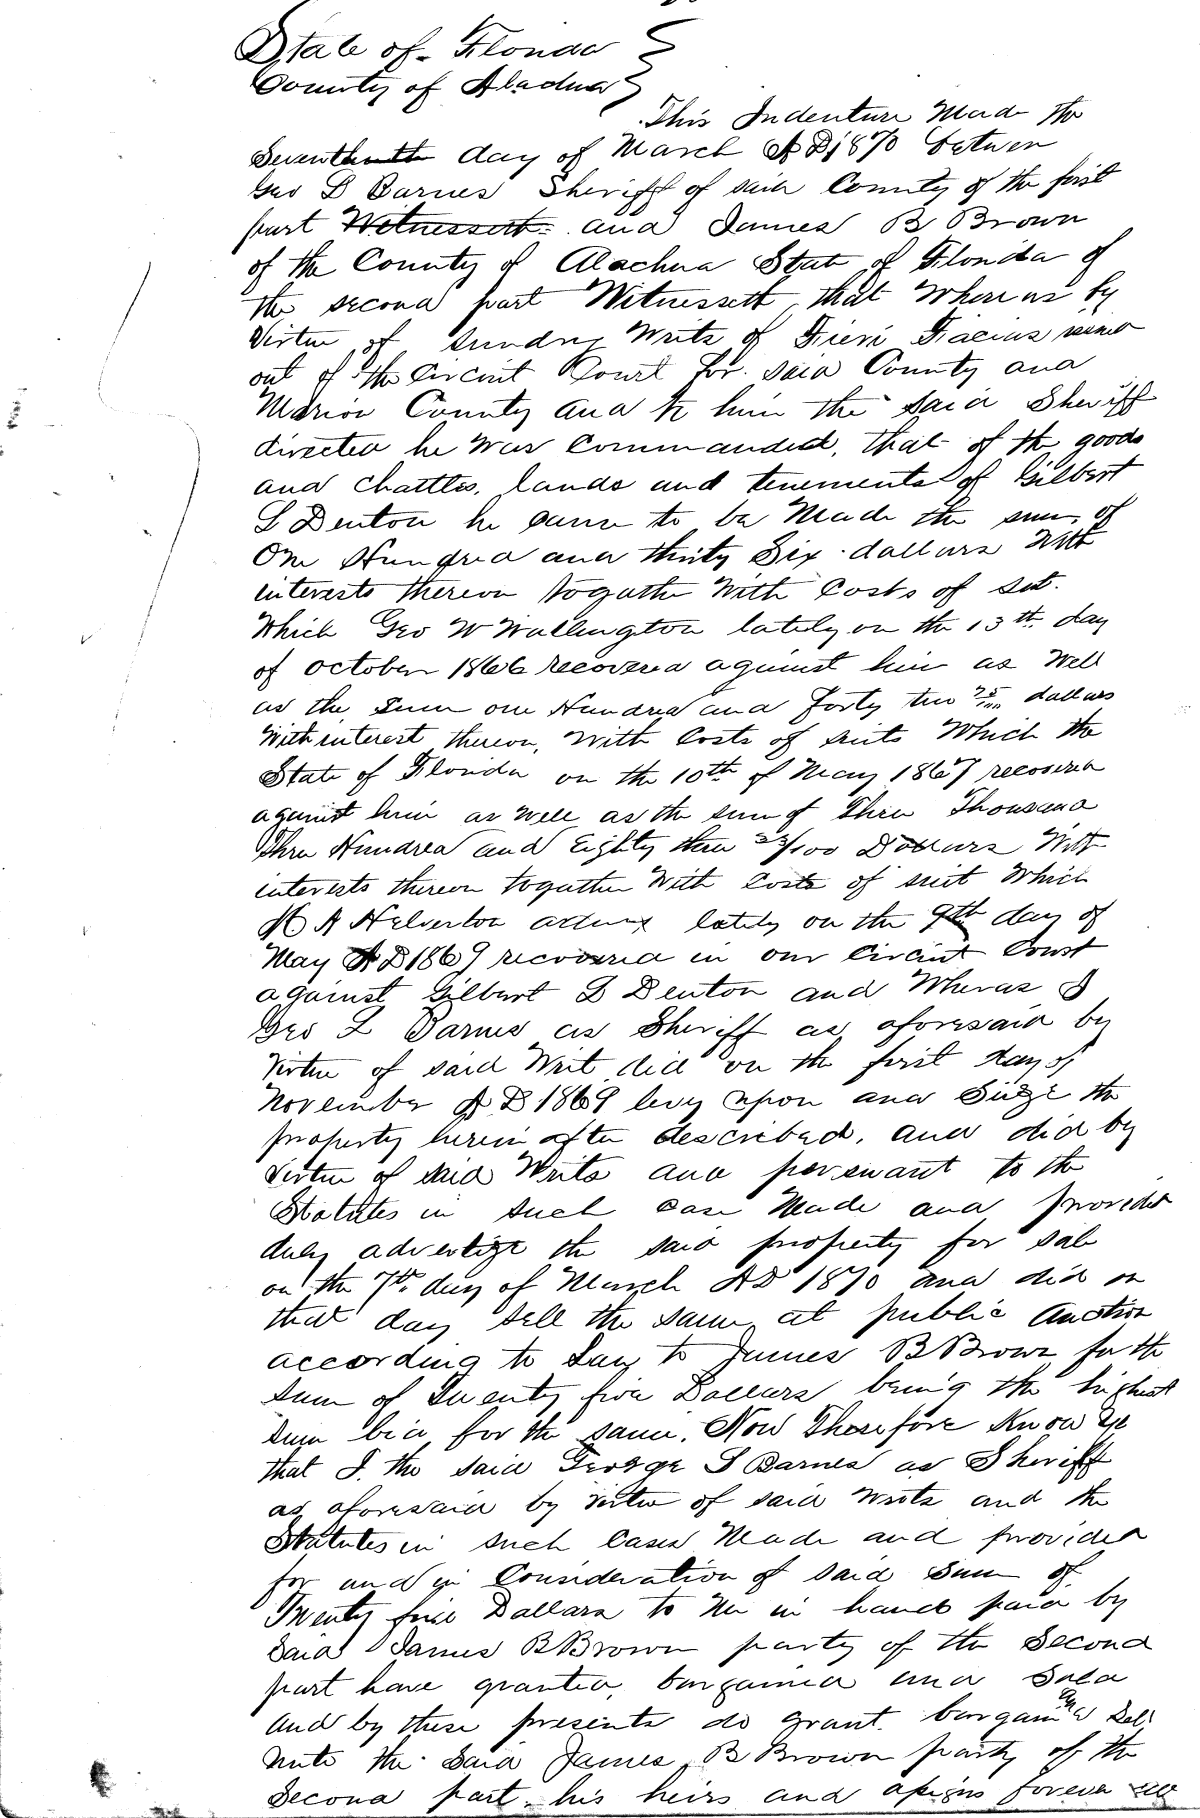 State of Florida
County of Alachua
This Indenture Made the
Seventh day of March AD 1870 between
Geo L Barnes Sheriff of said County of the first
part Witnesseth and James B Brown
of the County of Alachua State of Florida of
the second part Witnesseth, that Whereas by
Virtue of sundry Writs of Fieri Facias issued
out of the Circuit Court for said County and
Marion County and to him the said Sheriff
directed he was Commanded, that of the goods
and Chattles, lands and tenements of Gilbert
L Denton he cause to be Made the sum of
One Hundred and thirty Six dollars With
interests thereon togather With Costs of sut.
Which Geo W Wallington lately on the 13th day
of October 1866 recovered against him as Well
as the Sum one Hundred and Forty two dollars
With interest thereon, With Costs of suits Which the
State of Florida on the 10th of May 1867 recovered
against him as well as the sum of Three Thousand
Three Hundred and Eighty three 33/100 Dollars With
interests thereon togather With Costs of suit Which
H A Helverton lately on the 9th day of
May AD 1869 recovered in our Circuit Court
against Gilbert L Denton and Wheras I
Geo L Barnes as Sheriff as aforesaid by
Virtue of said Writ did on the first day of
November AD 1869 levy upon and Siezc the
property herein after described, and did by
virtue of said Writs and persuant to the
Statutes in such case Made and provided
duly advertize the said property for sale
on the 7th day of March AD 1870 and did on
that day sell the same at public Auction
according to Law to James B Brown for the
sum of Twenty five Dollars being the highest
sum bid for the same. Now Therefore Know Ye
that I the said George L Barnes as Sheriff
as aforesaid by virtue of said Writs and the
Statutes in such Cases Made and provided
for and in Consideration of said Sum of
Twenty five Dollars to Me in hand paid by
Said James B Brown party of the Second
part have granted, bargained and Sold
and by these presents do grant. bargain and Sell
unto the Said James B Brown party of the
Second part his heirs and assigns forever all